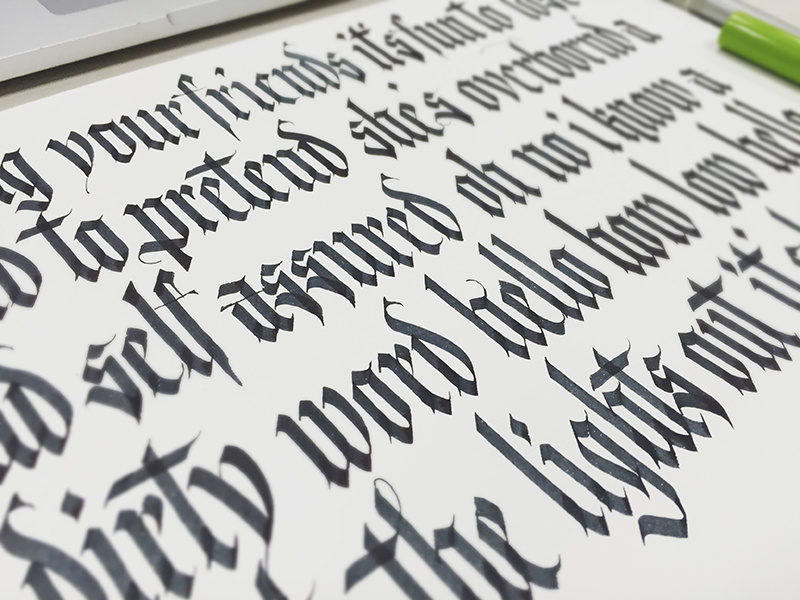 g your friends it's fun to lose
d to pretend she's overboard a
d self assured oh no i know a
dirty word hello how low hello
the lights out it's